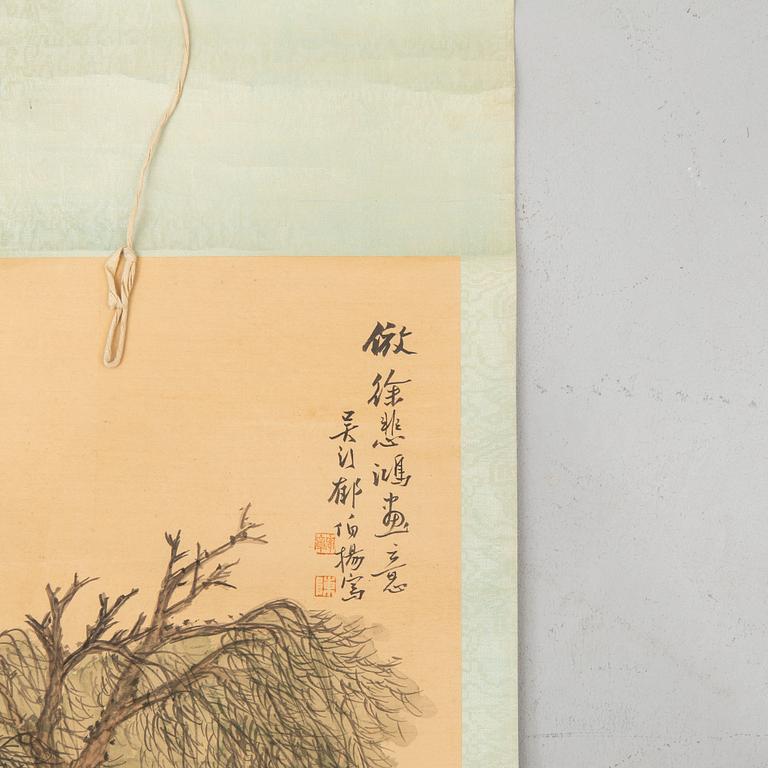 倣徐悲鴻畫意
吳江郁伯楊寫